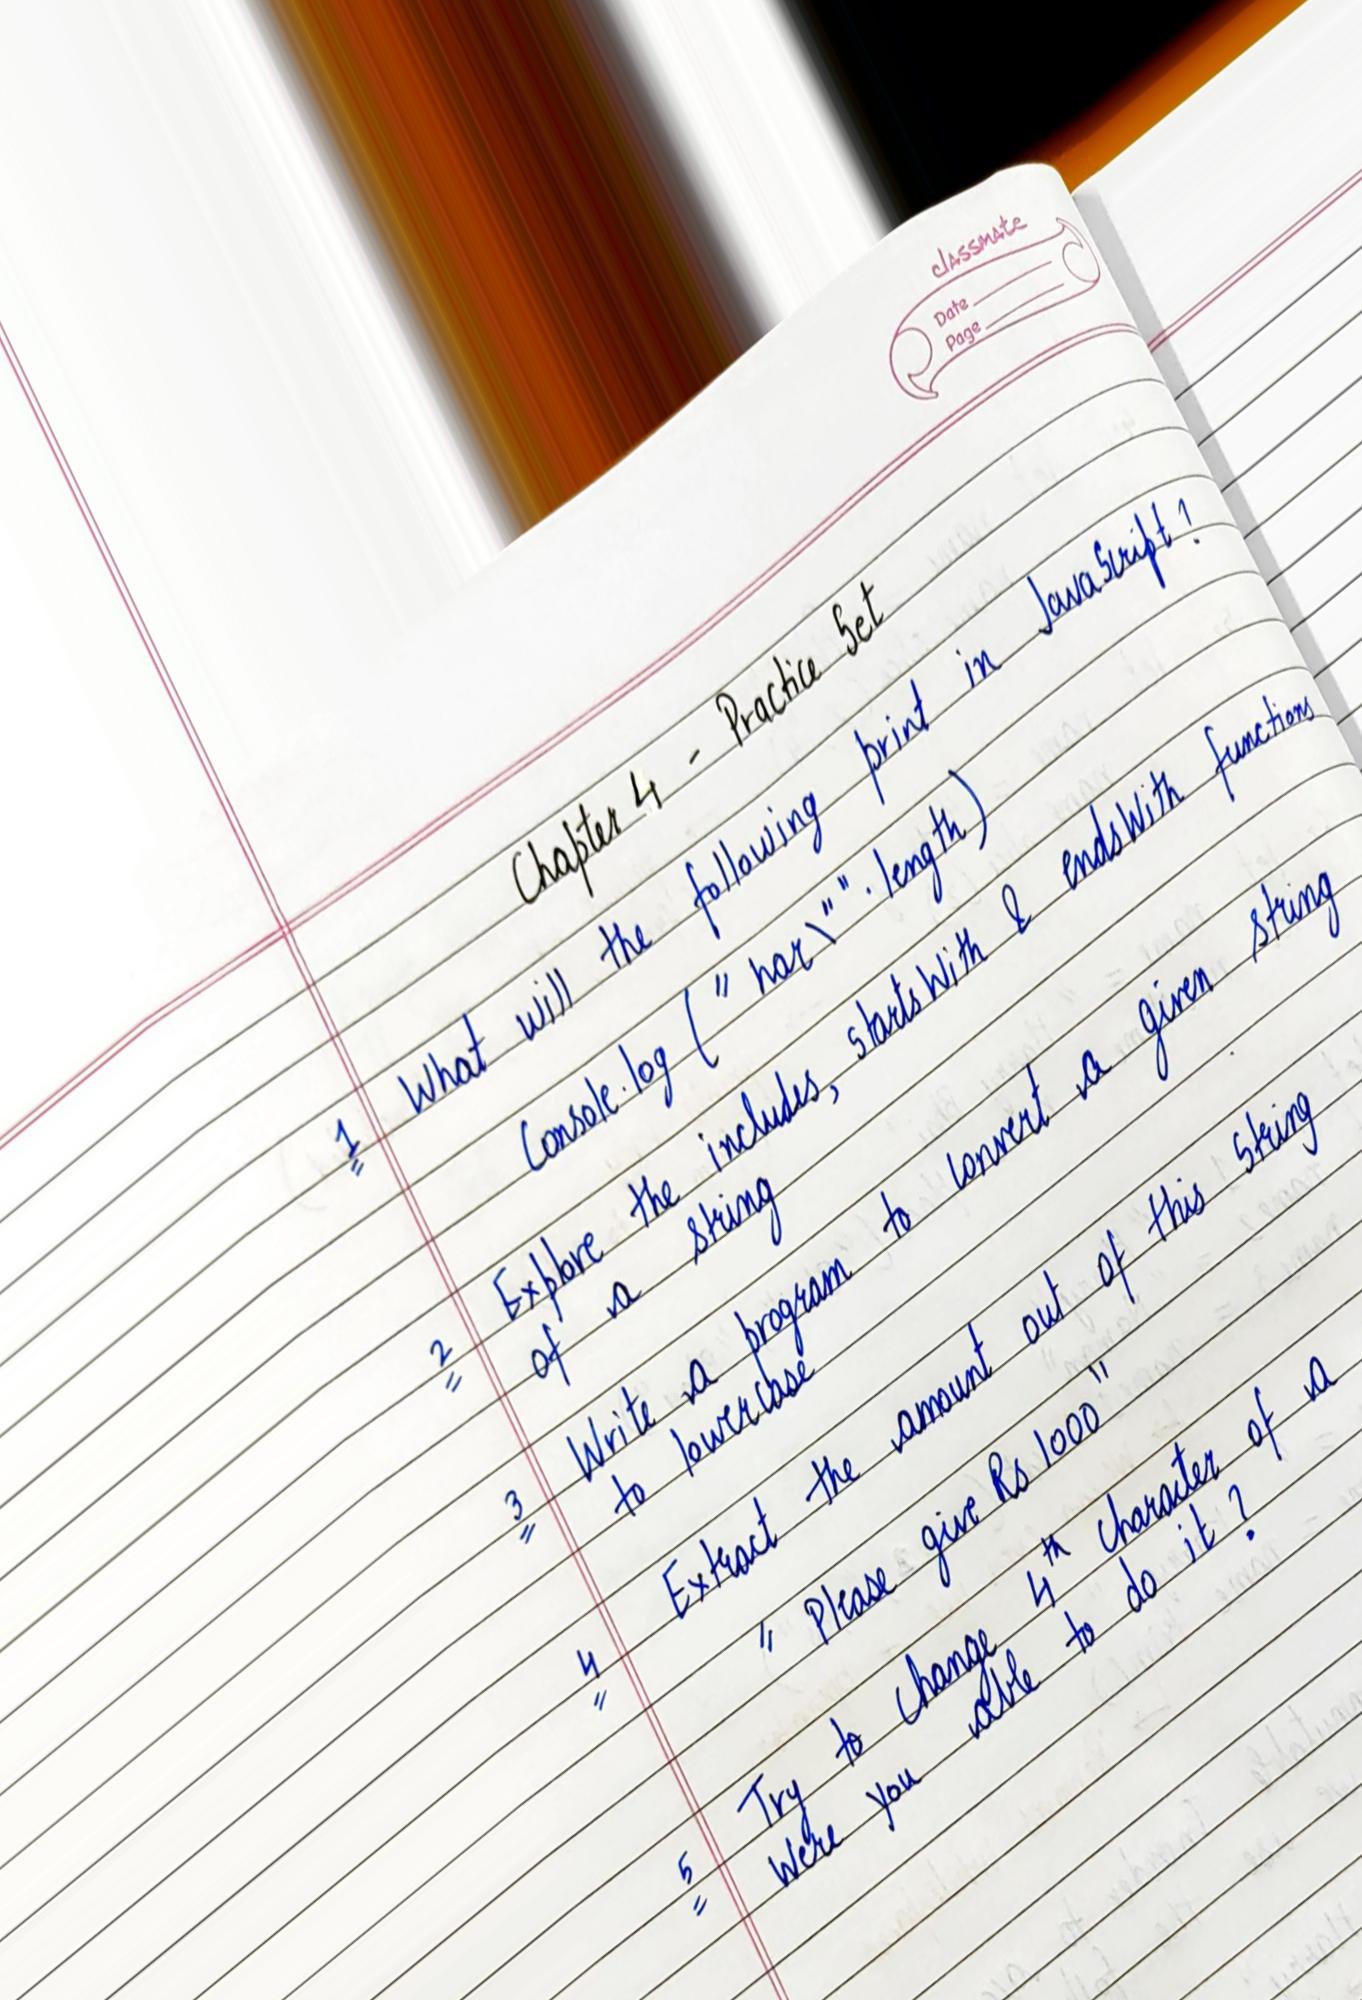 classmate
Date
Page
Chapter 4 - Practice Set
1 What will the following print in JavaScript?
Console.log ("har\"".length)
2 Explore the includes, startsWith & endsWith functions
of a string
3 Write a program to convert a given string
to lowercase
4 Extract the amount out of this string
"Please give Rs 1000"
5 Try to change 4th character of a
Were you able to do it?